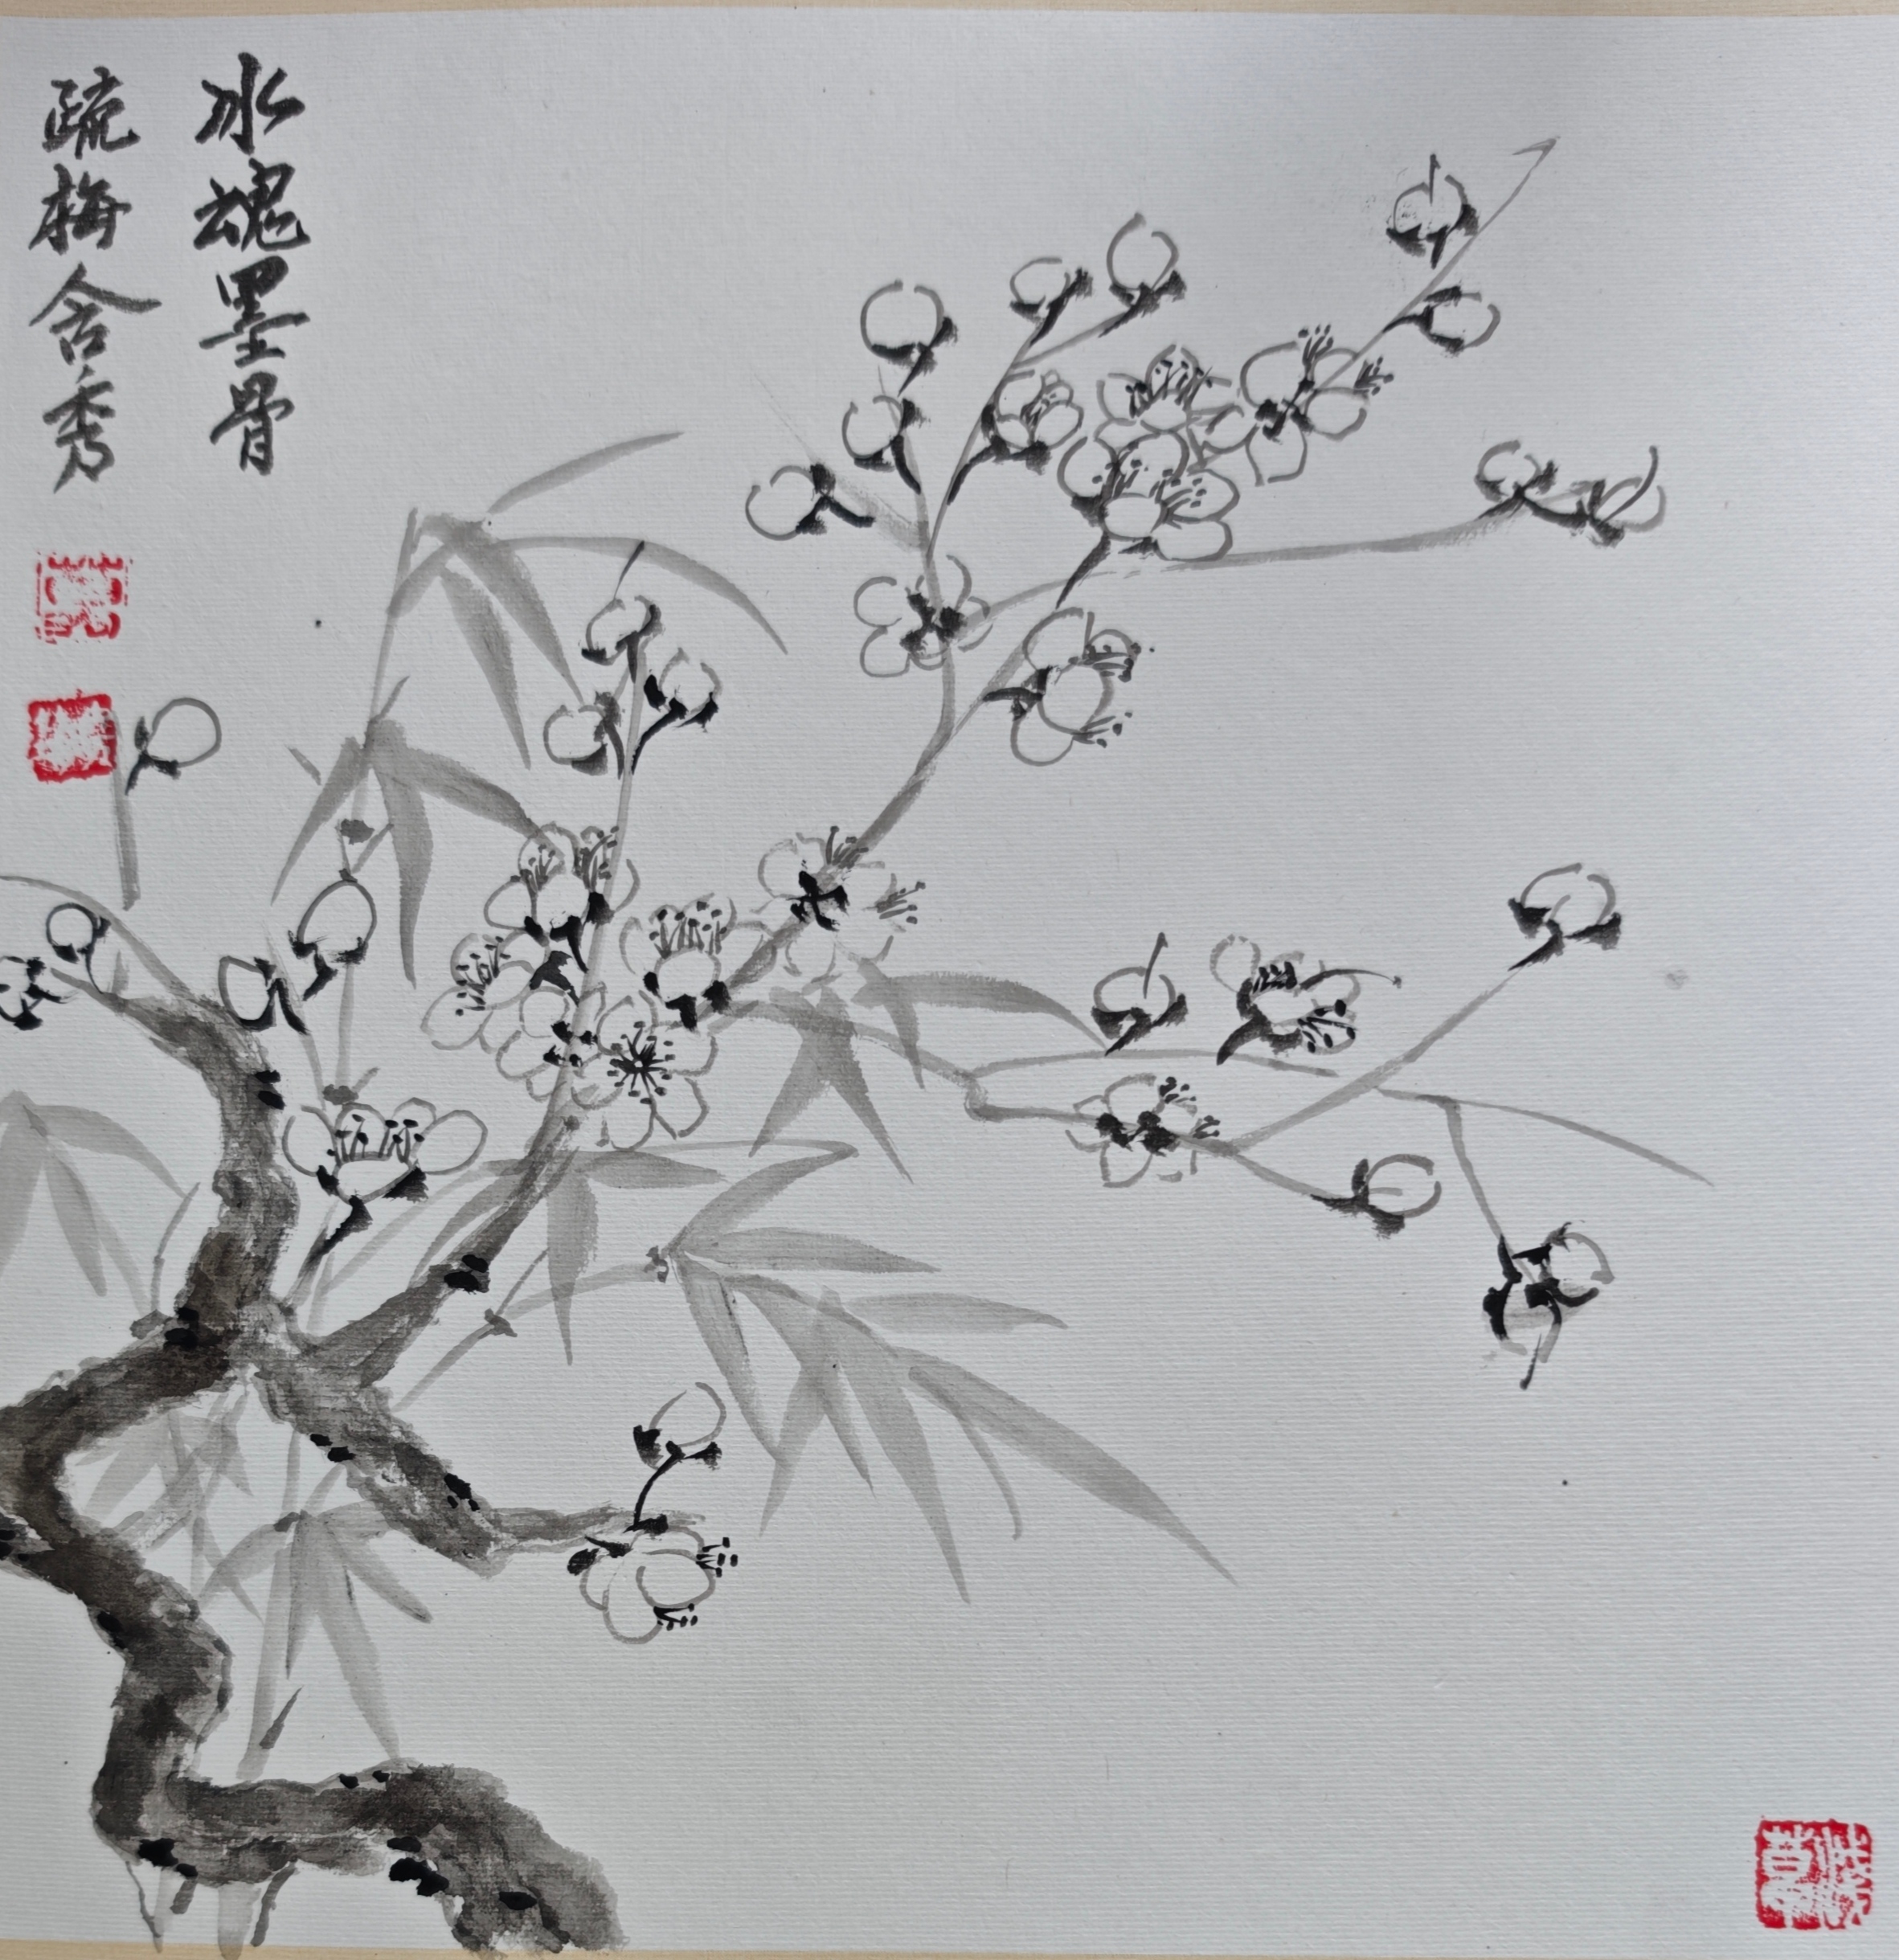 冰魂墨骨
疏梅含秀